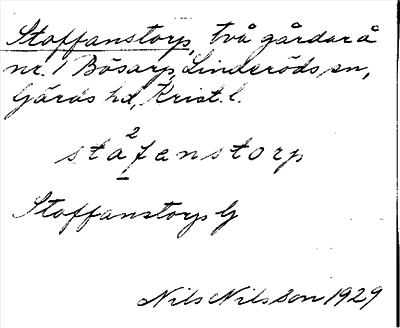 Staffanstorp, två gårdar å
nr. 1 Bösarp, Linderöds sn,
Gärds hd, Krist. l.
2
stafanstorp
Staffanstorps G
Nils Nilsson 1929